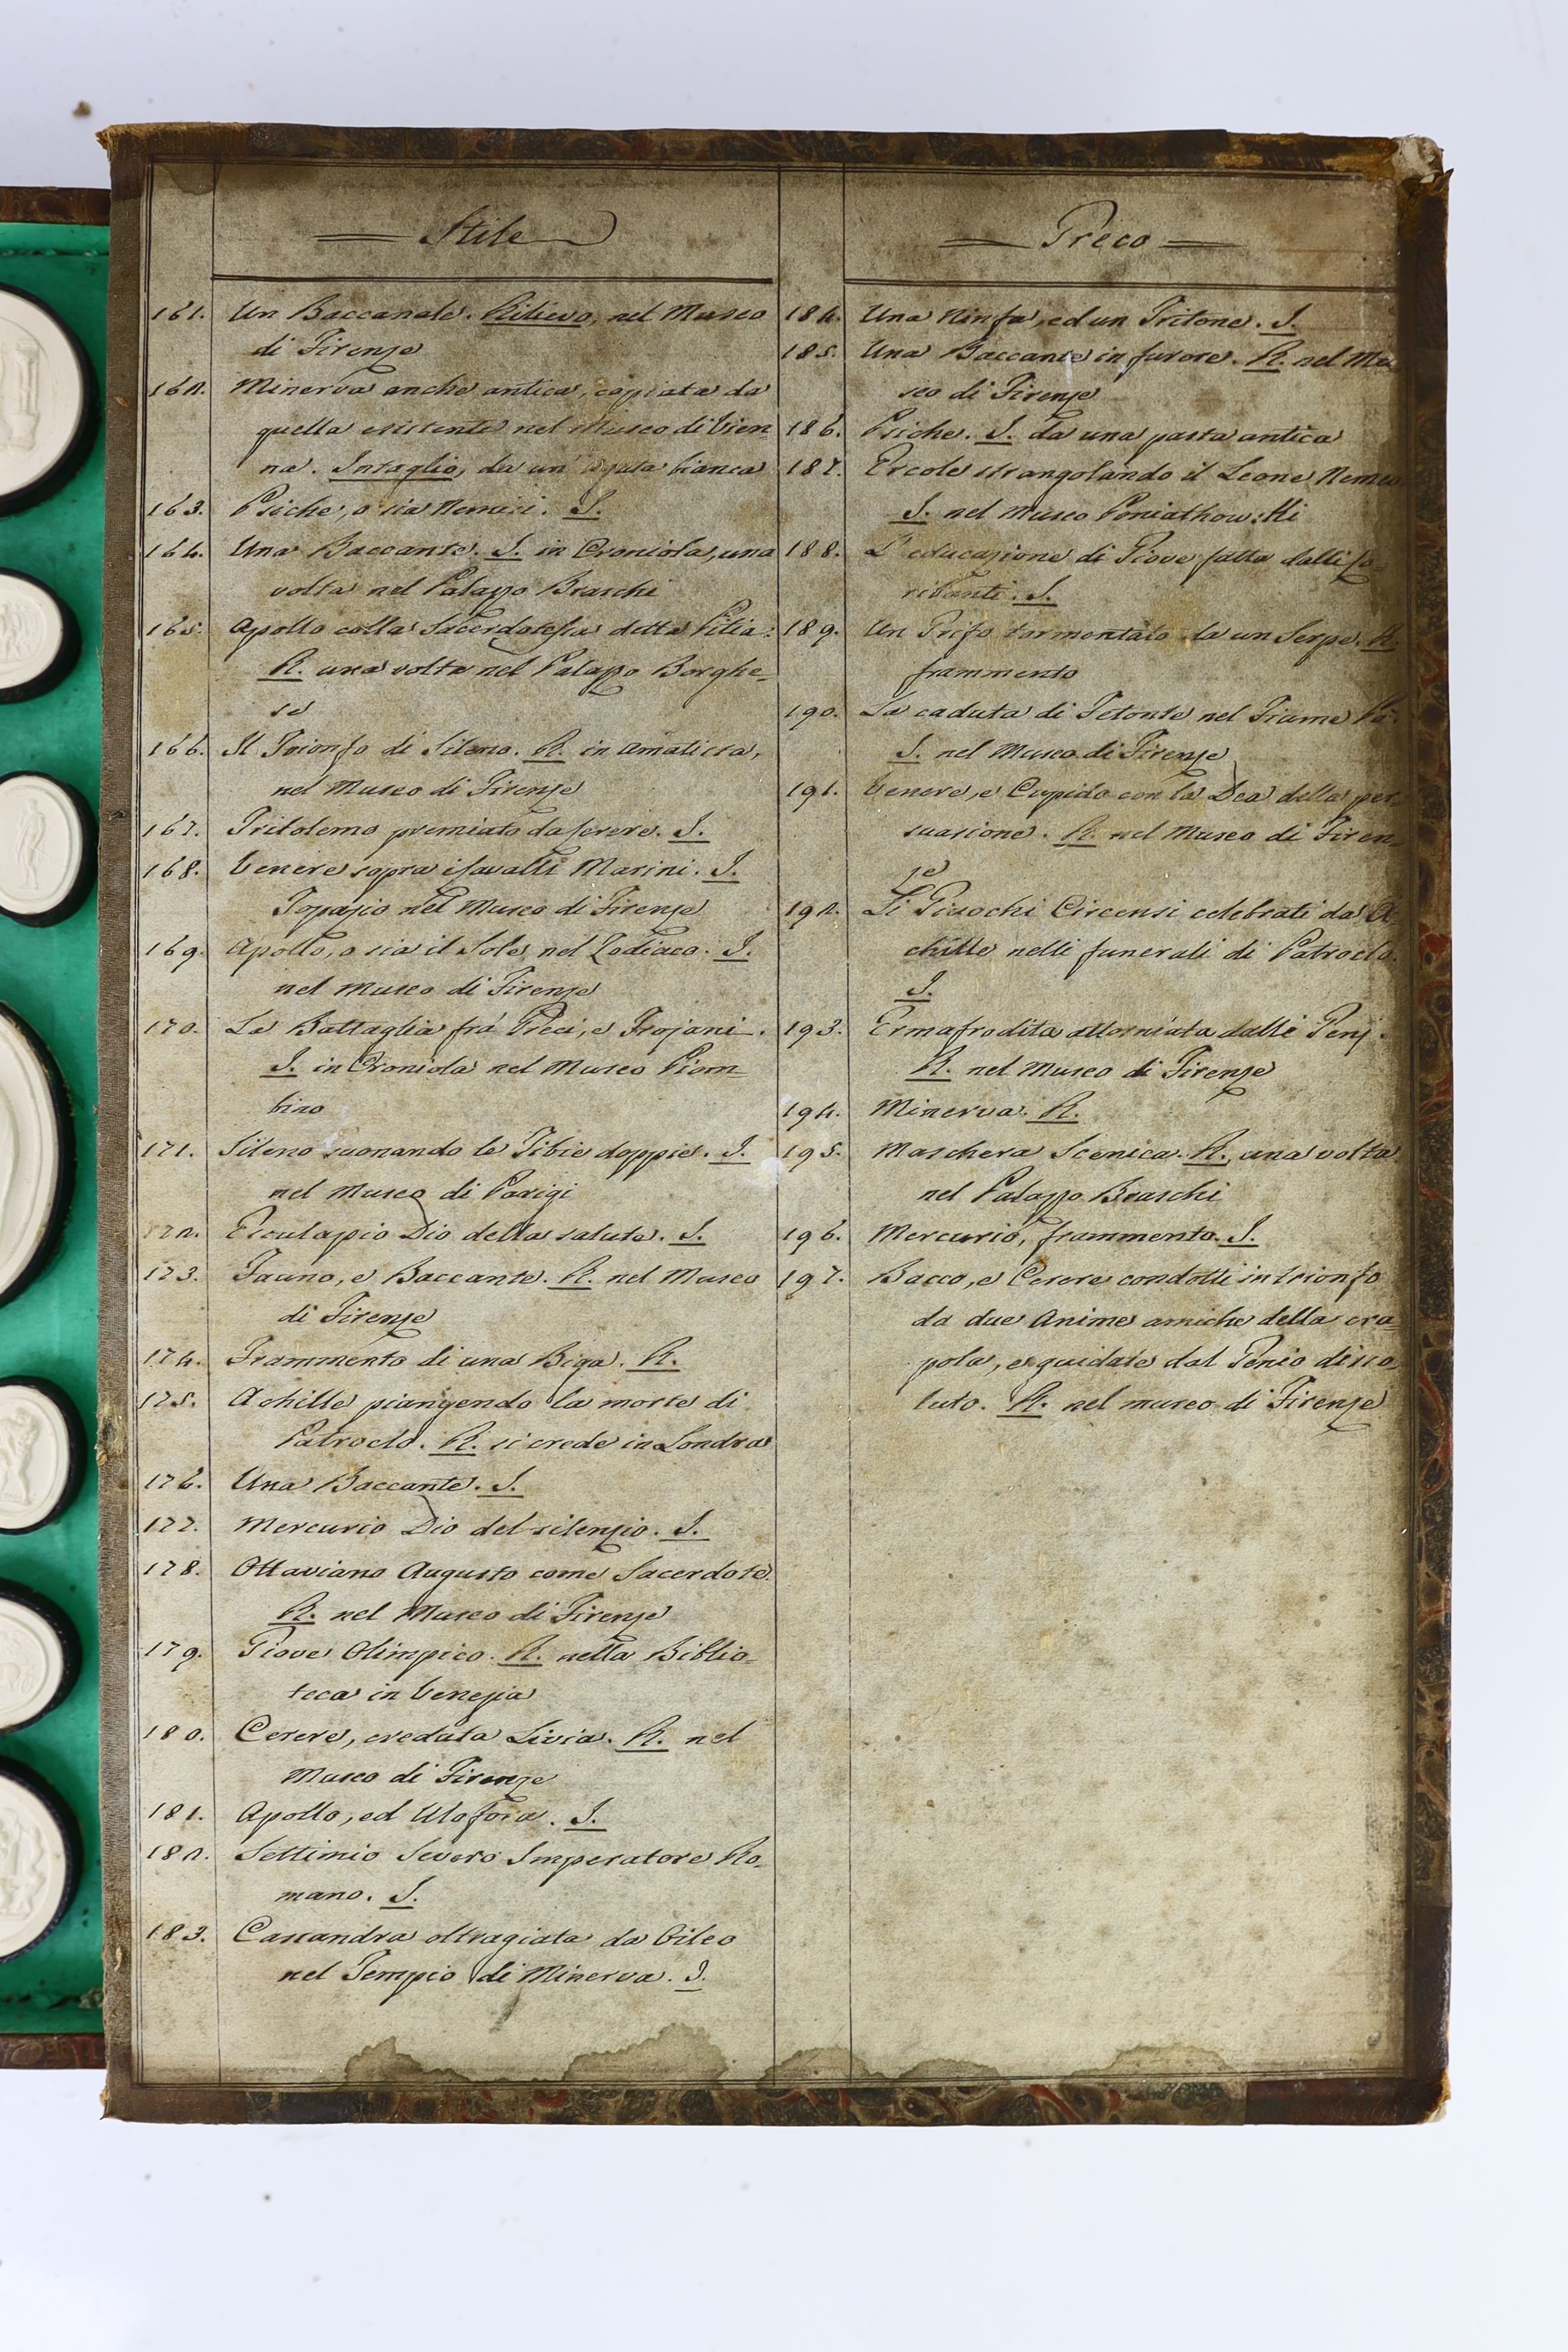 Stile
161. Un Baccanale. Rilievo, nel Museo
di Firenze
162. Minerva anche antica, copiata da
quella esistente nel Museo di Vien=
na. Intaglio, da un' agata bianca
163. Psiche, o sia Nemesi. I.
164. Una Baccante. I. in Croniola, una
volta nel Palazzo Braschi
165. Apollo colla Sacerdotessa detta Pitia:
R. una volta nel Palazzo Borghe=
se
166. Il Trionfo di Sileno. R. in Amatista,
nel Museo di Firenze
167. Tritolemo premiato da Cerere. I.
168. Venere sopra i Cavalli Marini. I.
Topazio nel Museo di Firenze
169. Apollo, o sia il Sole, nel Zodiaco. I.
nel Museo di Firenze
170. La Battaglia frà Greci, e Trojani.
I. in Croniola nel Museo Piom=
bino
171. Sileno suonando le Tibie doppie. I.
nel Museo di Parigi
172. Esculapio Dio della salute. I.
173. Fauno, e Baccante. R. nel Museo
di Firenze
174. Frammento di una Biga. R.
175. Achille piangendo la morte di
Patroclo. R. si crede in Londra
176. Una Baccante. I.
177. Mercurio Dio del silenzio. I.
178. Ottaviano Augusto come Sacerdote.
R. nel Museo di Firenze
179. Giove Olimpico. R. nella Biblio=
teca in Venezia
180. Cerere, creduta Livia. R. nel
Museo di Firenze
181. Apollo, ed Clofora. I.
182. Settimio Severo Imperatore Ro=
mano. I.
183. Cassandra oltragiata da Oileo
nel Tempio di Minerva. I.
Greco
184. Una Ninfa, ed un Tritone. I.
185. Una Baccante in furore. R. nel Mu
seo di Firenze
186. Psiche. I. da una pasta antica
187. Ercole strangolando il Leone Nemeo
I. nel Museo Poniathow:ski
188. L' educazione di Giove fatta dalli Co=
ribanti. I.
189. Un Grifo tormentato da un Serpe. R.
frammento
190. La caduta di Fetonte nel Fiume Pò.
I. nel Museo di Firenze
191. Venere, e Cupido con la Dea della per
suasione. R. nel Museo di Firen=
ze
192. Li Giuochi Circensi celebrati da A=
chille nelli funerali di Patroclo.
I.
193. Ermafrodita attorniata dalli Genj.
R. nel Museo di Firenze
194. Minerva. R.
195. Maschera Scenica. R. una volta
nel Palazzo Braschi
196. Mercurio, frammento. I.
197. Bacco, e Cerere condotti in trionfo
da due Anime amiche della cra=
pola, e guidate dal Genio disso=
luto. R. nel museo di Firenze